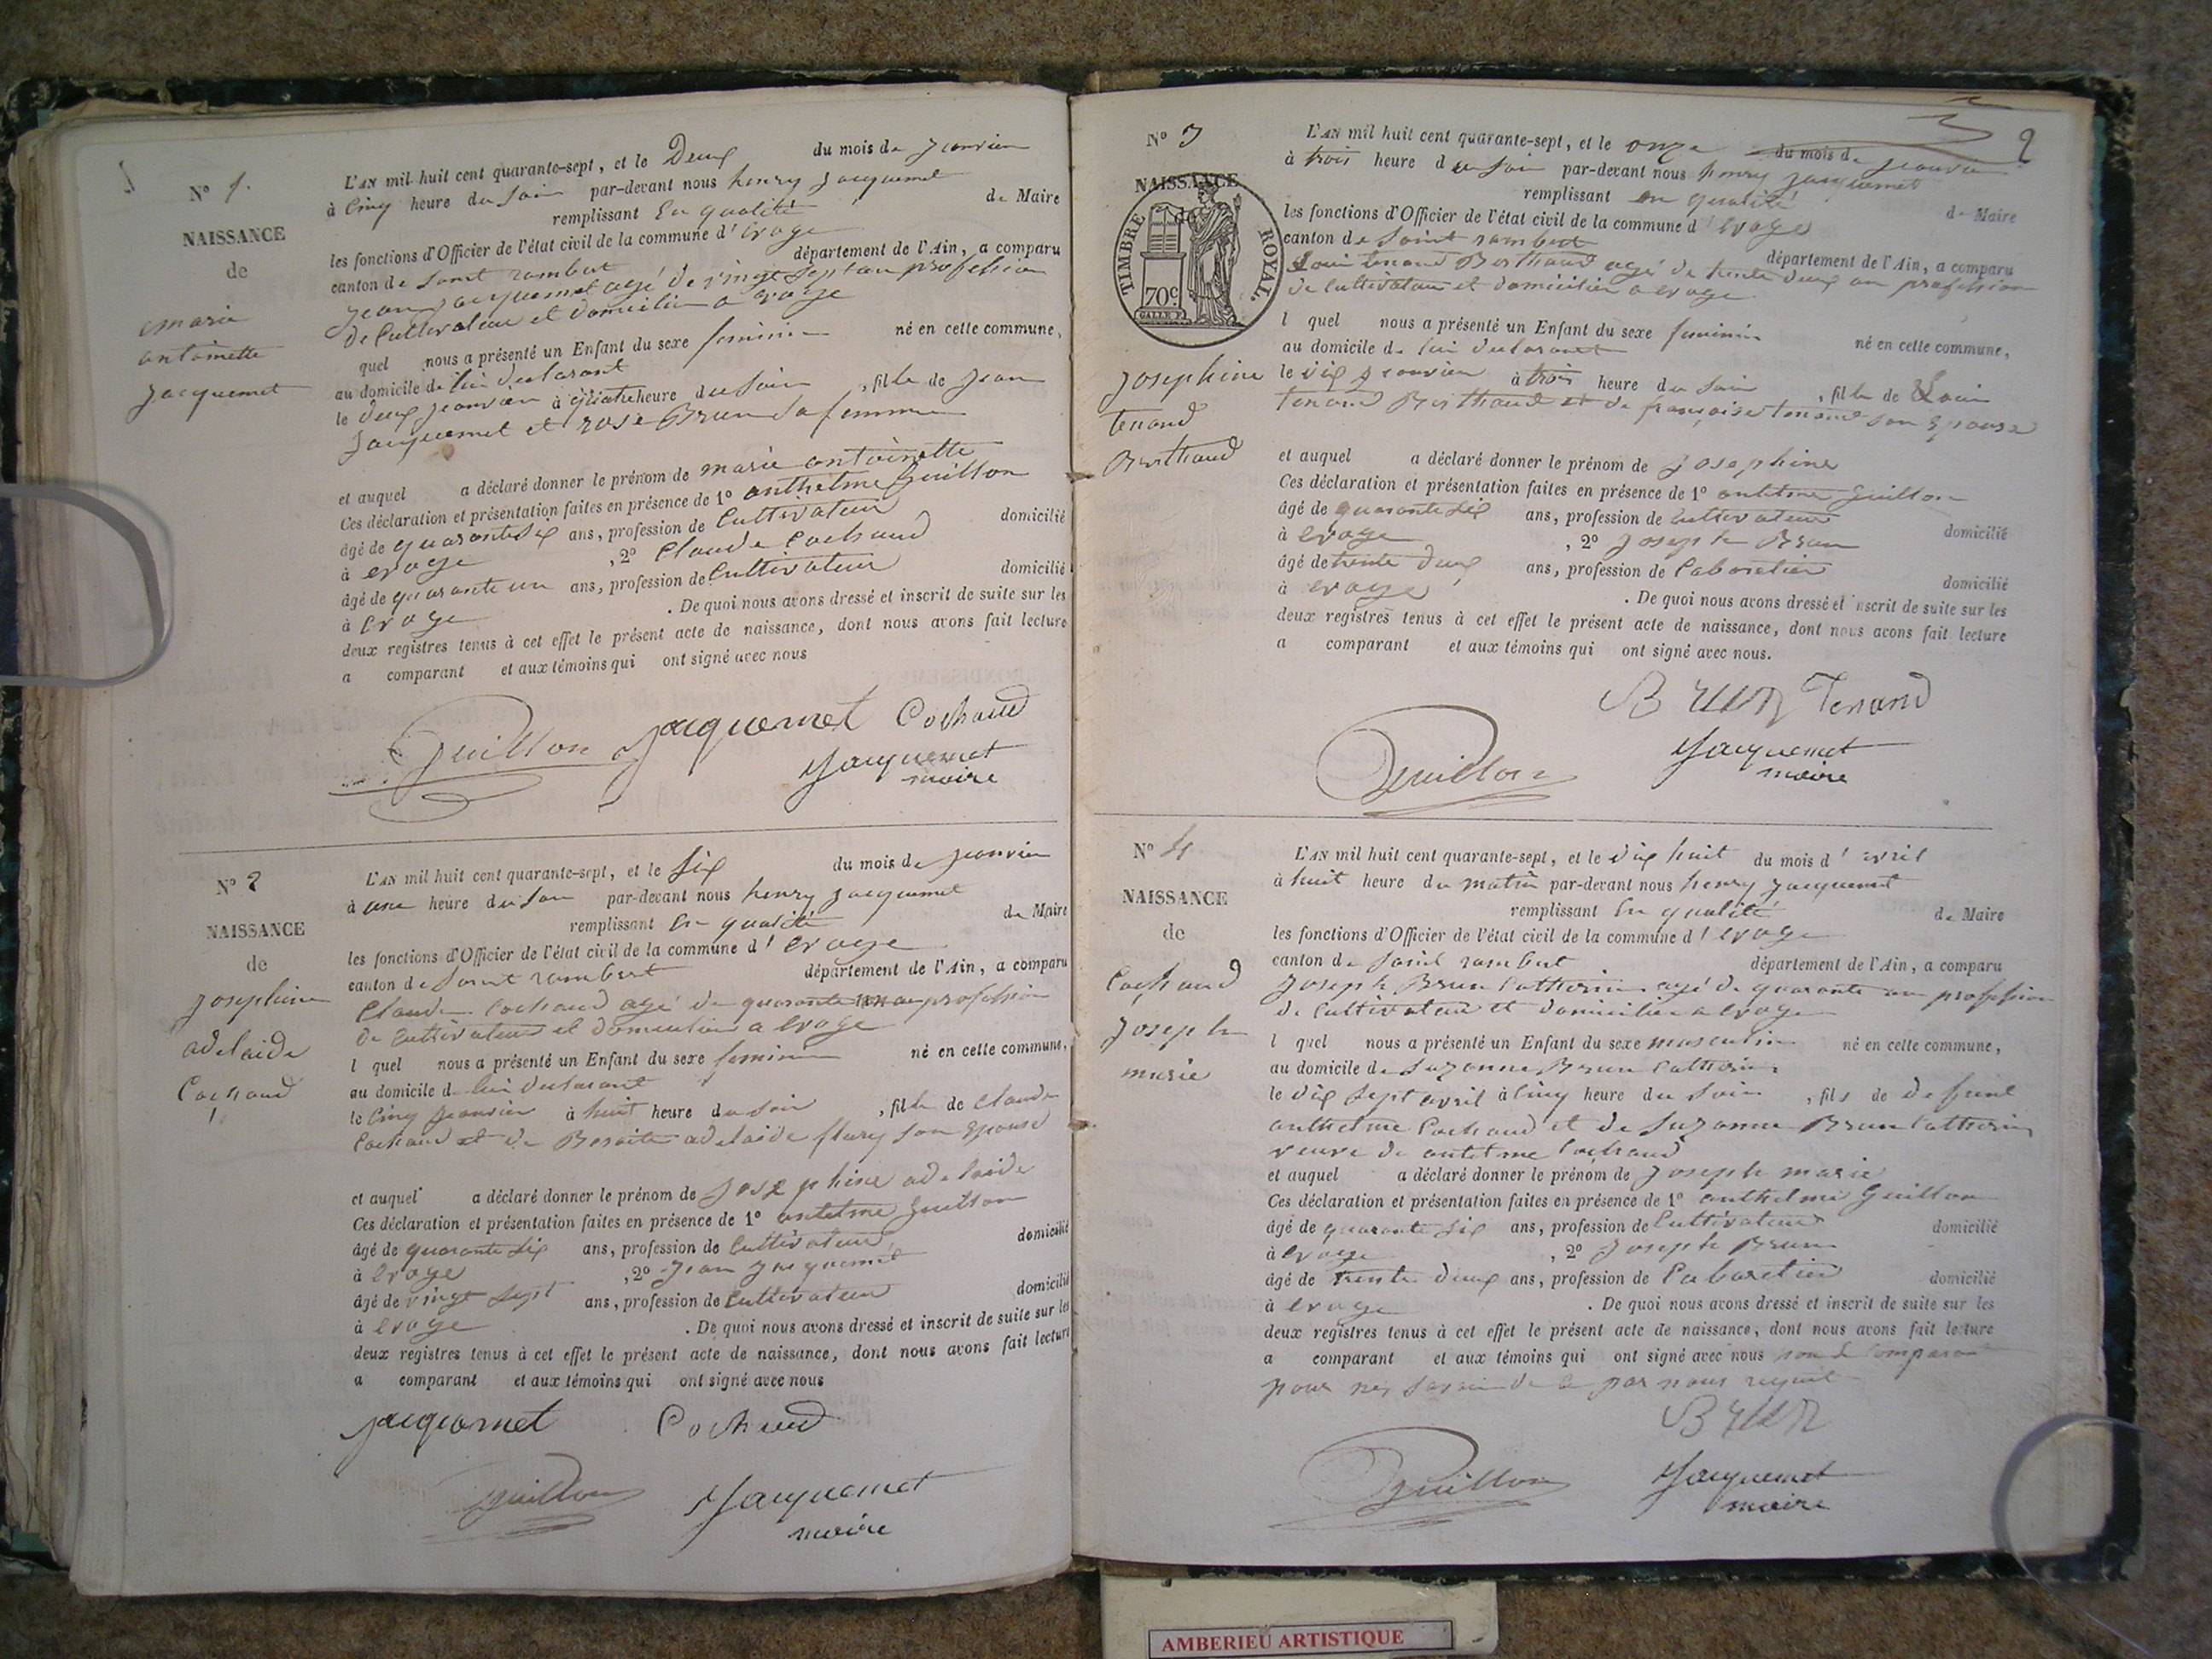 Nº 1.
NAISSANCE
de
marie
antoinette
Jacquemet
L'AN mil huit cent quarante-sept, et le Deux du mois de Janvier
à Cinq heure du soir par-devant nous henry Jacquemet
remplissant En qualité de Maire
les fonctions d'Officier de l'état civil de la commune d' Evoge
canton de Saint rambert département de l'Ain, a comparu
Jean Jacquemet agé de vingt sept an profession
de Cultivateur et domicilié a Evoge
quel nous a présenté un Enfant du sexe feminin né en cette commune,
au domicile de lui declarant
le deux Janvier à quatre heure du soir, fille de Jean
Jacquemet et rose Brun sa femme
et auquel a déclaré donner le prénom de marie antoinette
Ces déclaration et présentation faites en présence de 1º anthelme Guillon
âgé de quarante six ans, profession de Cultivateur domicilié
à evoge, 2º Claude Cochaud
âgé de quarante un ans, profession de Cultivateur domicilié
à Evoge. De quoi nous avons dressé et inscrit de suite sur les
deux registres tenus à cet effet le présent acte de naissance, dont nous avons fait lecture
a comparant et aux témoins qui ont signé avec nous
Guillon Jacquemet Cochaud
Jacquemet
maire
Nº 2
NAISSANCE
de
Josephine
adelaide
Cochaud
L'AN mil huit cent quarante-sept, et le Six du mois de Janvier
à une heure du soir par-devant nous henry Jacquemet
remplissant En qualité de Maire
les fonctions d'Officier de l'état civil de la commune d' Evoge
canton de Saint rambert département de l'Ain, a comparu
Claude Cochaud agé de quarante un an profession
de Cultivateur et domicilié a Evoge
l quel nous a présenté un Enfant du sexe feminin né en cette commune,
au domicile de lui declarant
le Cinq Janvier à huit heure du soir, fille de Claude
Cochaud et de Benoite adelaide flury son Epouse
et auquel a déclaré donner le prénom de Josephine adelaide
Ces déclaration et présentation faites en présence de 1º antelme Guillon
âgé de quarante six ans, profession de Cultivateur domicilié
à Evoge, 2º Jean Jacquemet
âgé de vingt sept ans, profession de Cultivateur domicilié
à Evoge. De quoi nous avons dressé et inscrit de suite sur les
deux registres tenus à cet effet le présent acte de naissance, dont nous avons fait lecture
a comparant et aux témoins qui ont signé avec nous
Jacquemet Cochaud
Guillon Jacquemet
maire
2
Nº 3
NAISSANCE
TIMBRE ROYAL
70c
Josephine
tenand
Berthaud
L'AN mil huit cent quarante-sept, et le onze du mois de Janvier
à trois heure du soir par-devant nous henry Jacquemet
remplissant en qualité de Maire
les fonctions d'Officier de l'état civil de la commune d' Evoge
canton de Saint rambert département de l'Ain, a comparu
Loui tenand Berthaud agé de trente deux an profession
de Cultivateur et domicilié a evoge
l quel nous a présenté un Enfant du sexe feminin né en cette commune,
au domicile de lui declarant
le dix Janvier à trois heure du soir, fille de Loui
tenand Berthaud et de françoise tenand son Epouse
et auquel a déclaré donner le prénom de Josephine
Ces déclaration et présentation faites en présence de 1º antelme Guillon
âgé de quarante six ans, profession de Cultivateur domicilié
à evoge, 2º Joseph Brun
âgé de trente deux ans, profession de Cabaretier domicilié
à Evoge. De quoi nous avons dressé et inscrit de suite sur les
deux registres tenus à cet effet le présent acte de naissance, dont nous avons fait lecture
a comparant et aux témoins qui ont signé avec nous.
BRUN Tenand
Guillon Jacquemet
maire
Nº 4
NAISSANCE
de
Cochaud
Joseph
marie
L'AN mil huit cent quarante-sept, et le dix huit du mois d' avril
à huit heure du matin par-devant nous henry Jacquemet
remplissant En qualité de Maire
les fonctions d'Officier de l'état civil de la commune d' Evoge
canton de Saint rambert département de l'Ain, a comparu
Joseph Brun Catherin agé de quarante an profession
de Cultivateur et domicilié a Evoge
l quel nous a présenté un Enfant du sexe masculin né en cette commune,
au domicile de Suzanne Brun Catherin
le dix sept avril à Cinq heure du soir, fils de defunt
anthelme Cochaud et de Suzanne Brun Catherin
veuve de antelme Cochaud
et auquel a déclaré donner le prénom de Joseph marie
Ces déclaration et présentation faites en présence de 1º anthelme Guillon
âgé de quarante six ans, profession de Cultivateur domicilié
à Evoge, 2º Joseph Brun
âgé de trente deux ans, profession de Cabaretier domicilié
à Evoge. De quoi nous avons dressé et inscrit de suite sur les
deux registres tenus à cet effet le présent acte de naissance, dont nous avons fait lecture
a comparant et aux témoins qui ont signé avec nous non le Comparant
pour de par nous requit
BRUN
Guillon Jacquemet
maire
AMBERIEU ARTISTIQUE